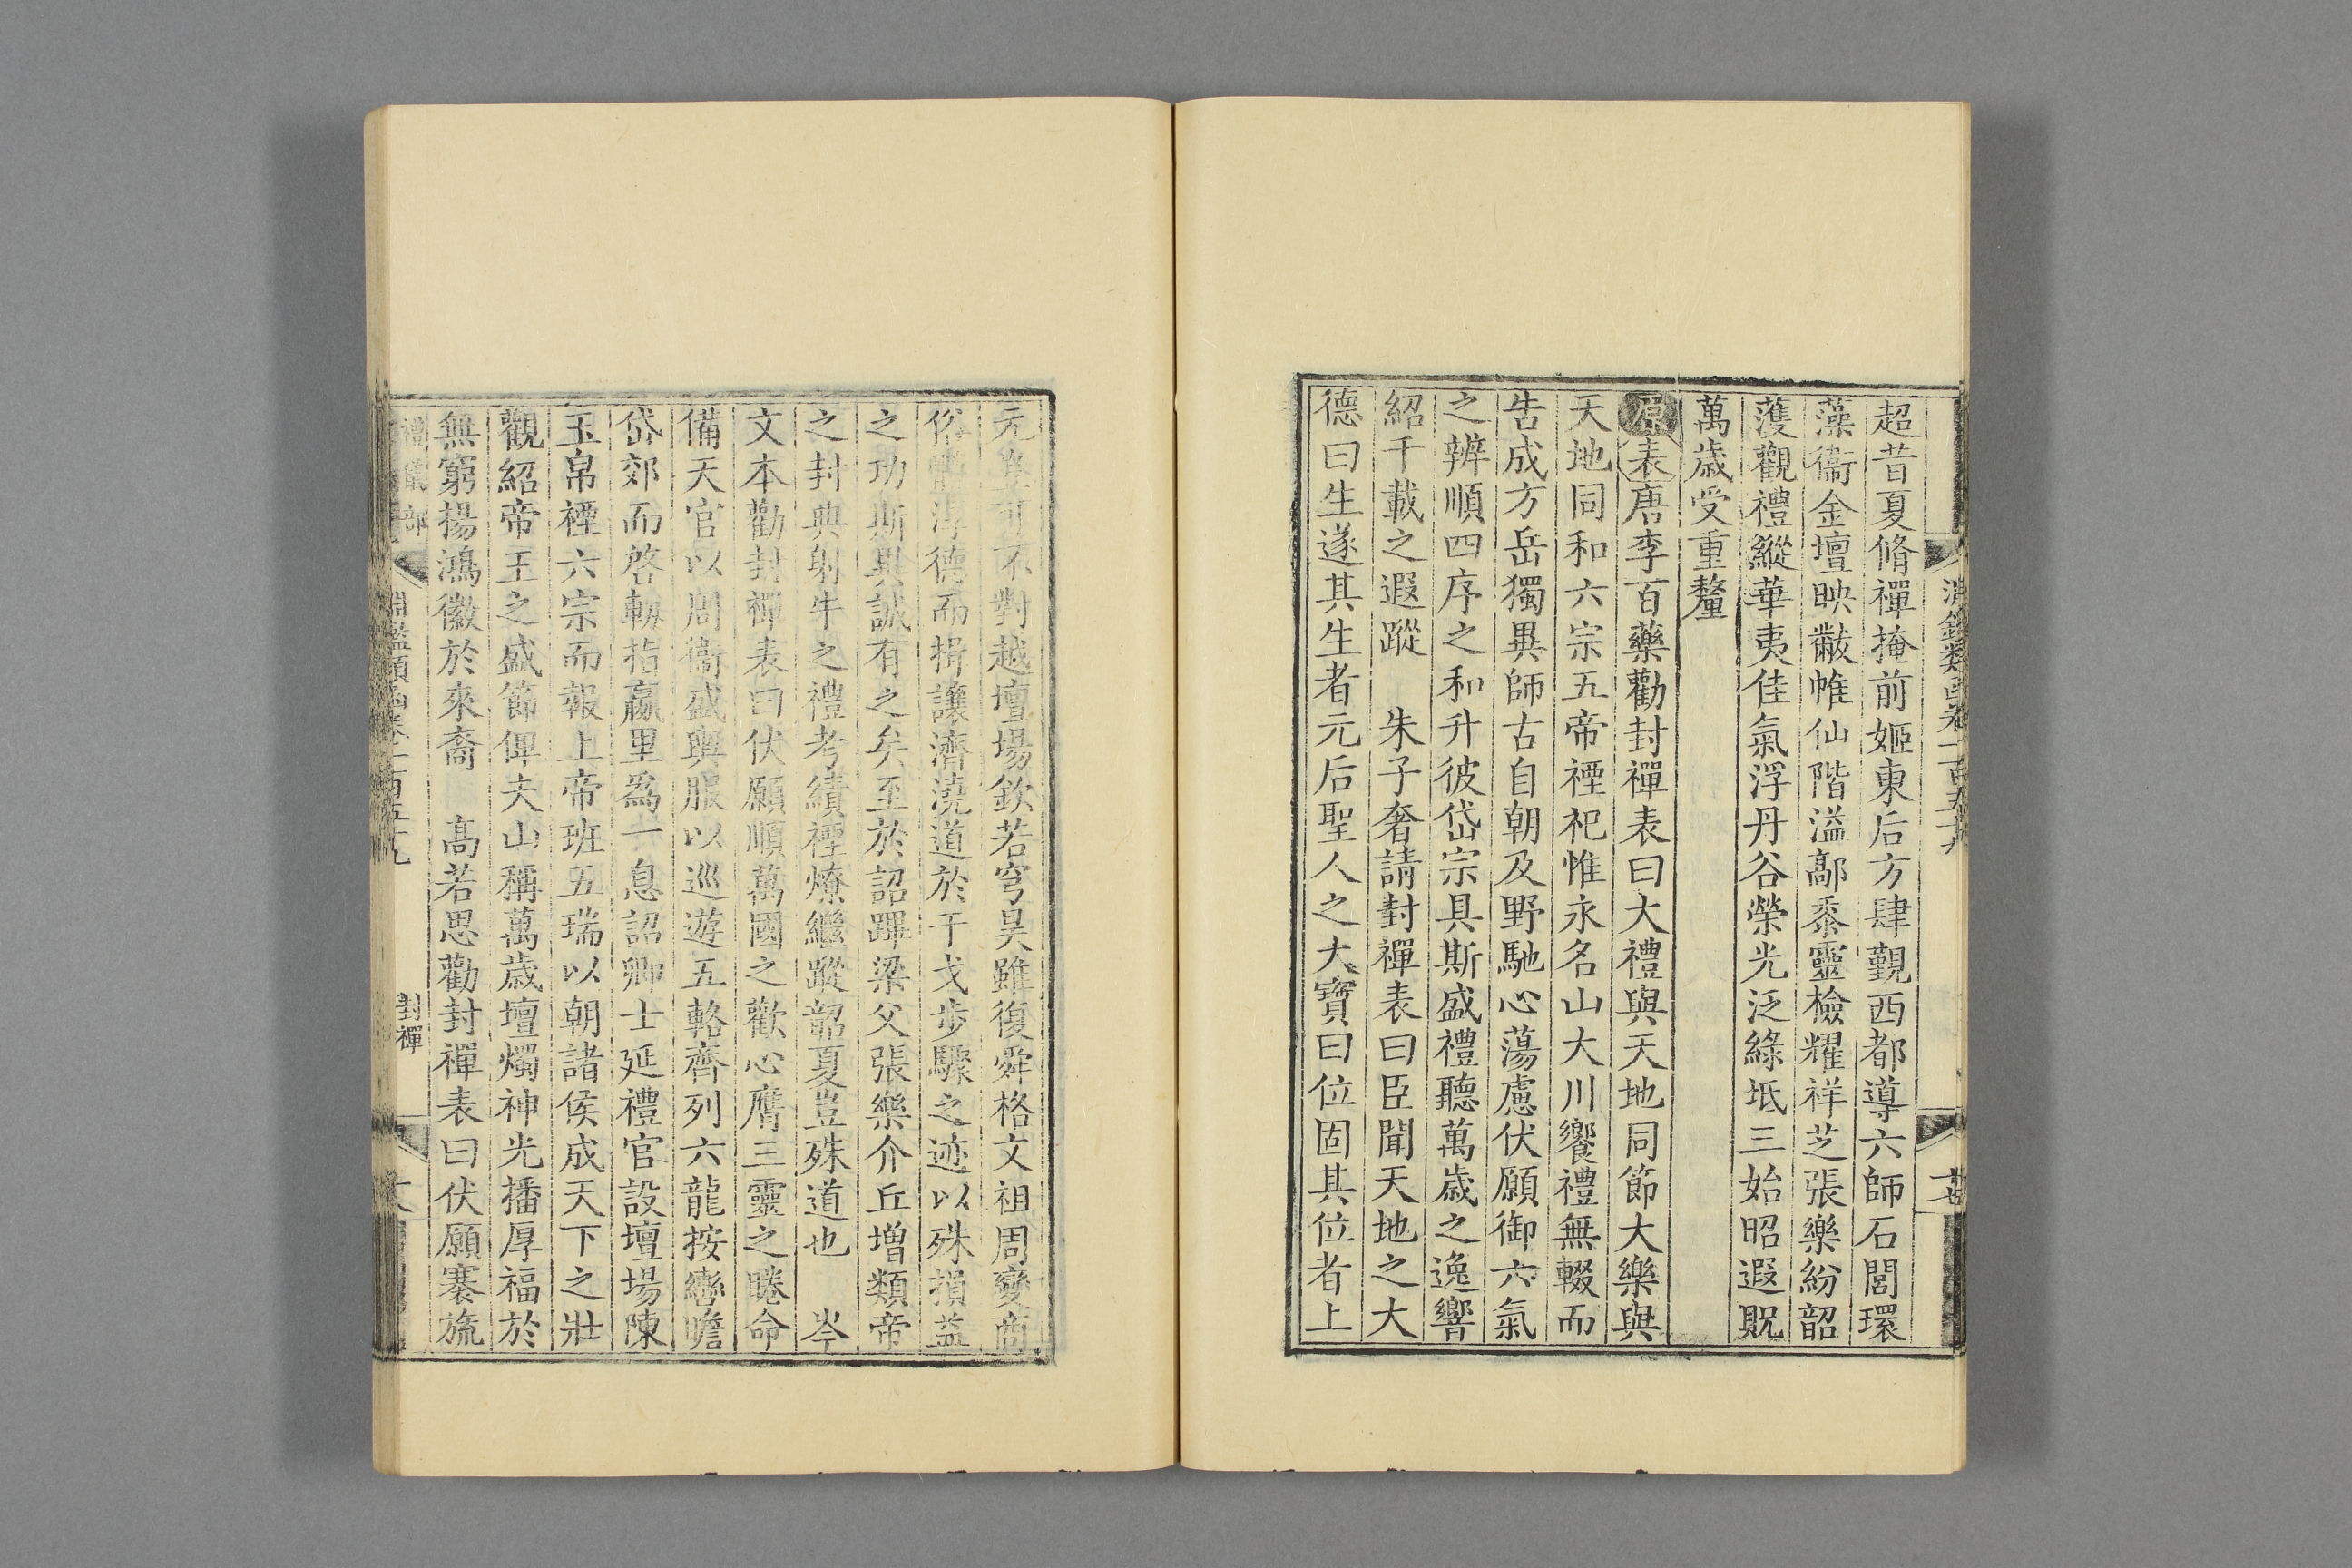 超昔夏脩禪掩前姬東后方肆覲西都導六師石閭環
藻衞金壇映黻帷仙階溢鄗黍靈檢耀祥芝張樂紛韶
頀觀禮縱華夷佳氣浮丹谷榮光泛綠坻三始昭遐貺
萬歲受重釐
原表唐李百藥勸封禪表曰大禮與天地同節大樂與
天地同和六宗五帝禋祀惟永名山大川饗禮無輟而
告成方岳獨異師古自朝及野馳心蕩慮伏願御六氣
之辨順四序之和升彼岱宗具斯盛禮聽萬歲之逸響
紹千載之遐蹤 朱子奢請封禪表曰臣聞天地之大
德曰生遂其生者元后聖人之大寶曰位固其位者上
元 對越壇場欽若穹昊雖復舜格文祖周變商
俗 淳德而揖讓濟澆道於干戈步驟之迹以殊損益
之功斯異誠有之矣至於詔蹕梁父張樂介丘增類帝
之封典射牛之禮考績禋燎繼蹤韶夏豈殊道也 岑
文本勸封禪表曰伏願順萬國之歡心膺三靈之睠命
備天官以周衞盛輿服以巡遊五輅齊列六龍按轡瞻
岱郊而啓軔指嬴里爲一息詔卿士延禮官設壇場陳
玉帛禋六宗而報上帝班五瑞以朝諸侯成天下之壯
觀紹帝王之盛節俾夫山稱萬歲壇燭神光播厚福於
無窮揚鴻徽於來裔 高若思勸封禪表曰伏願褰旒
禮儀部 淵鑑類函卷一百五十九 封禪